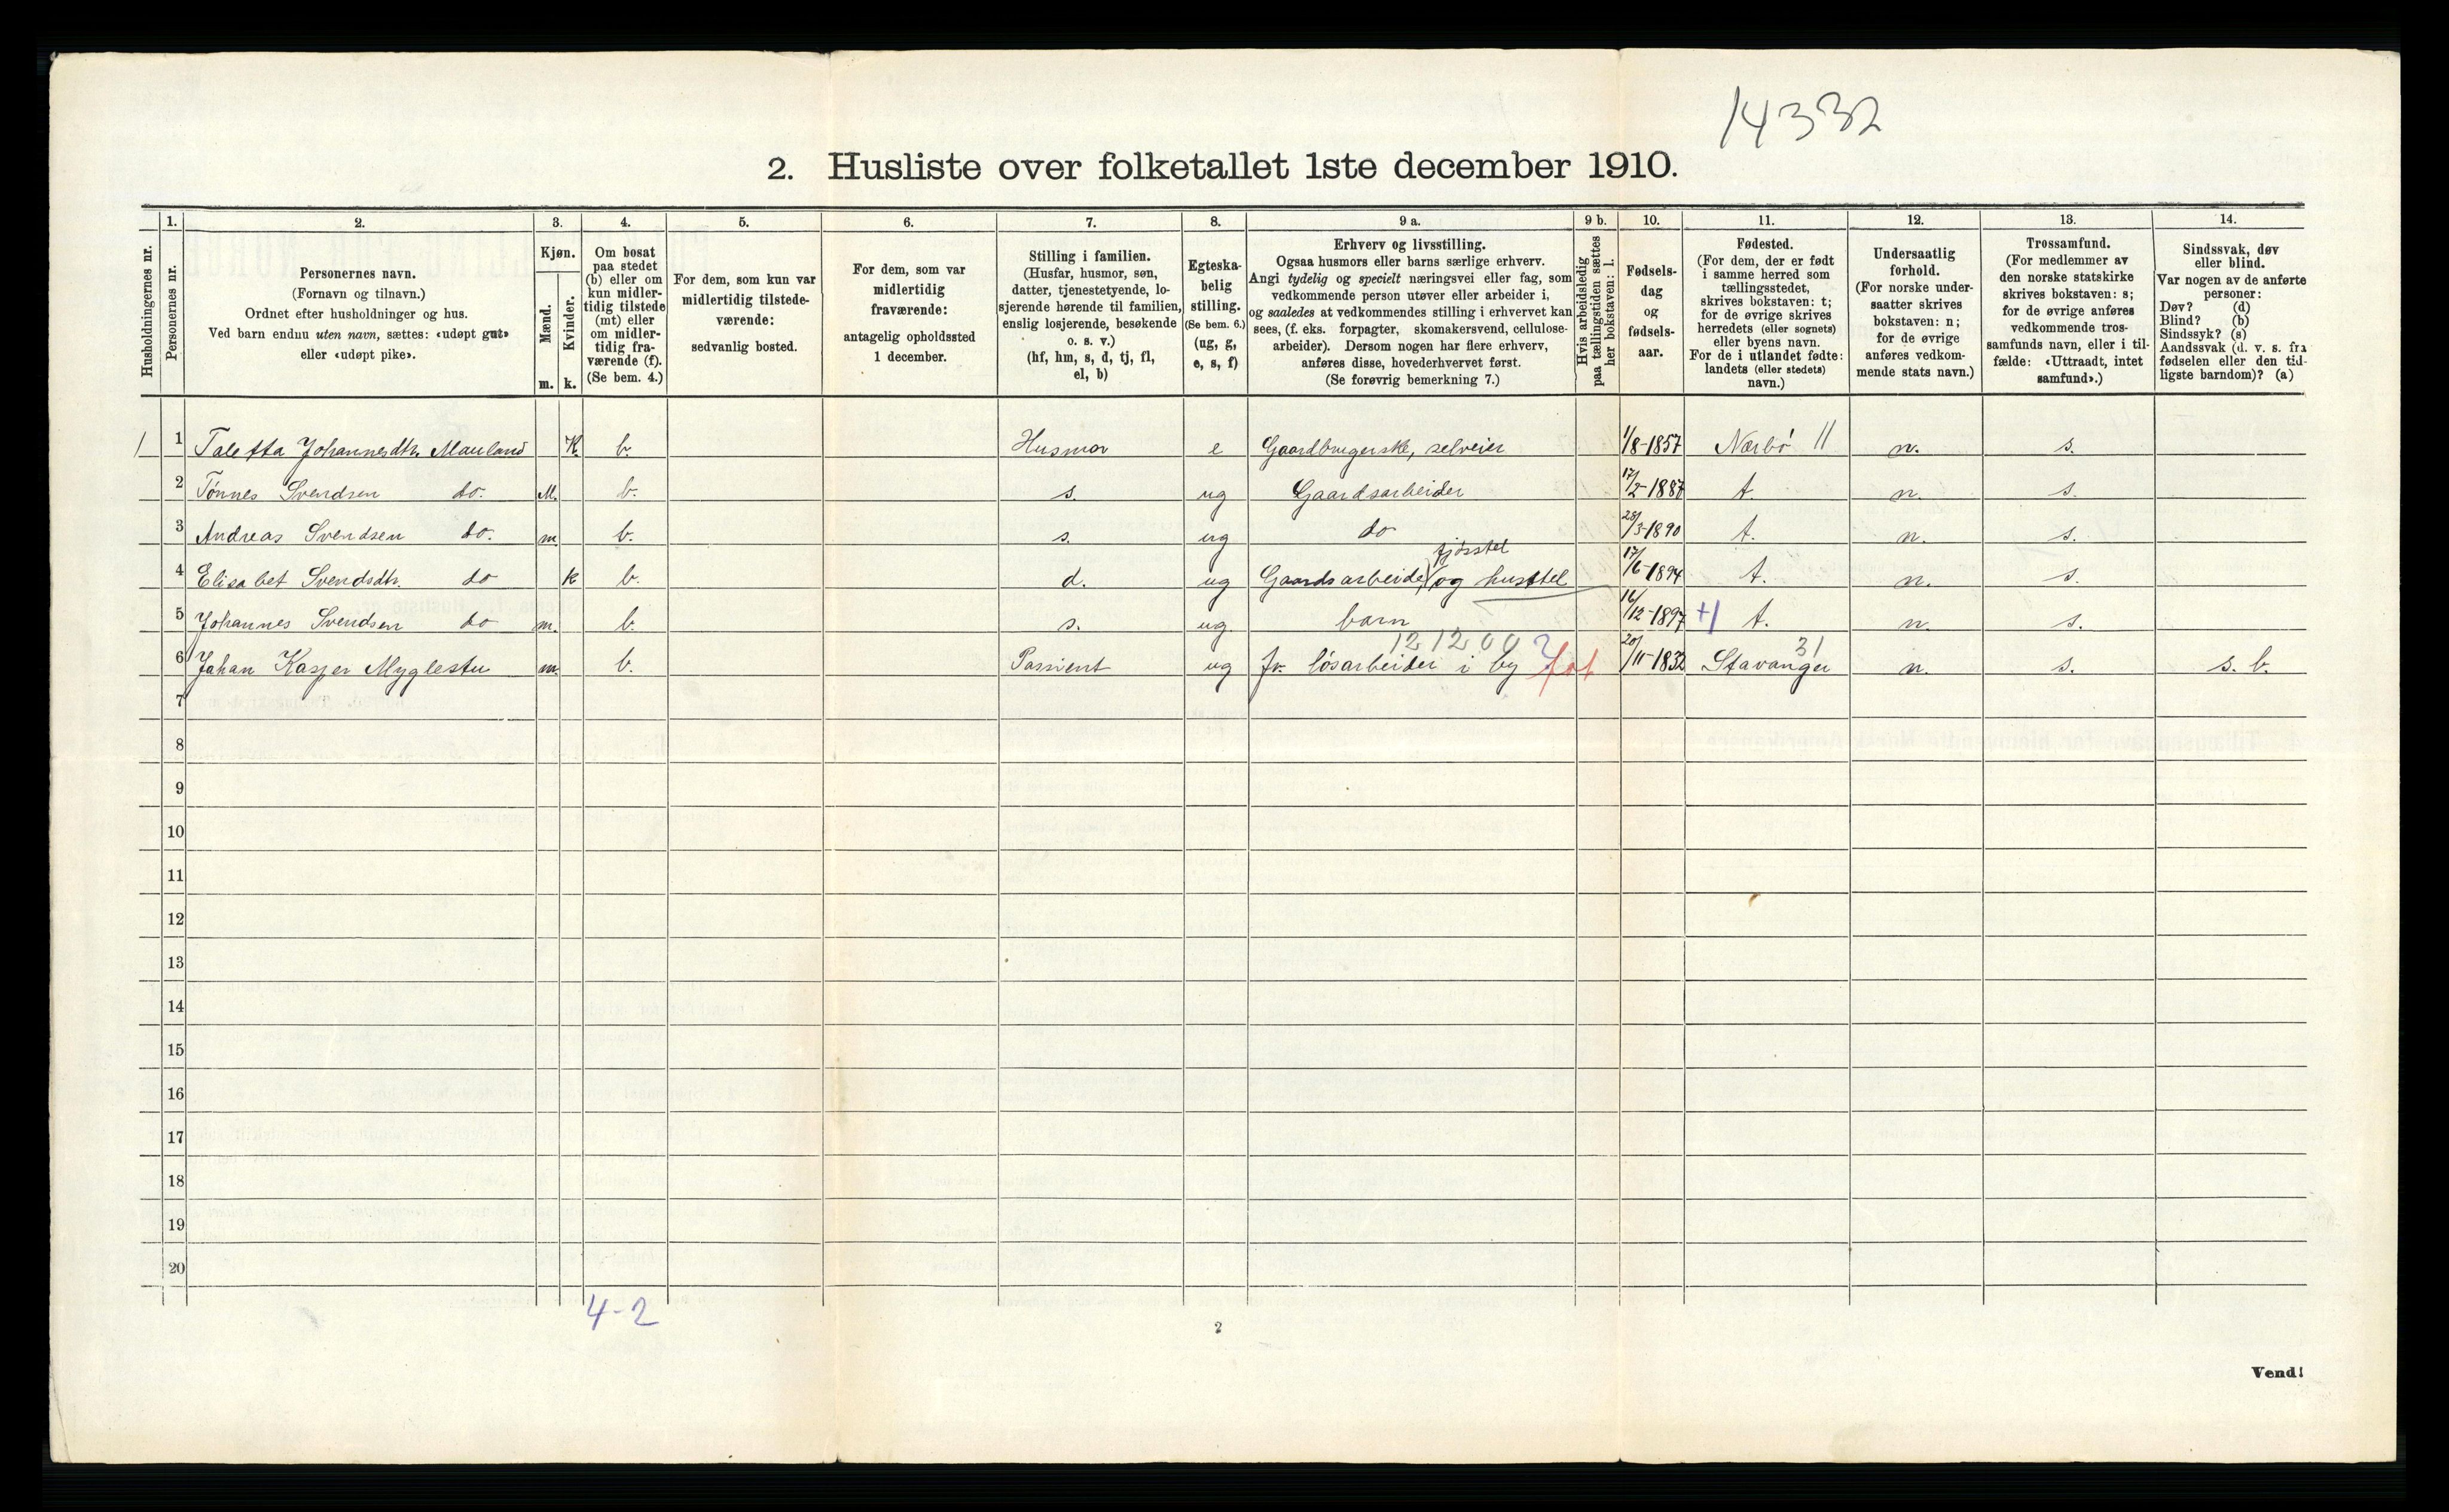 14332
2. Husliste over folketallet 1ste december 1910.
Husholdningernes nr.
1. Personernes nr.
2. Personernes navn. (Fornavn og tilnavn.) Ordnet efter husholdninger og hus. Ved barn endnu uten navn, sættes: «udøpt gut» eller «udøpt pike».
3. Kjøn. Mænd. m. Kvinder. k.
4. Om bosat paa stedet (b) eller om kun midlertidig tilstede (mt) eller om midlertidig fraværende (f). (Se bem. 4.)
5. For dem, som kun var midlertidig tilstedeværende: sedvanlig bosted.
6. For dem, som var midlertidig fraværende: antagelig opholdssted 1 december.
7. Stilling i familien. (Husfar, husmor, søn, datter, tjenestetyende, losjerende hørende til familien, enslig losjerende, besøkende o. s. v.) (hf, hm, s, d, tj, fl, el, b)
8. Egteskabelig stilling. (Se bem. 6.) (ug, g, e, s, f)
9 a. Erhverv og livsstilling. Ogsaa husmors eller barns særlige erhverv. Angi tydelig og specielt næringsvei eller fag, som vedkommende person utøver eller arbeider i, og saaledes at vedkommendes stilling i erhvervet kan sees, (f. eks. forpagter, skomakersvend, cellulosearbeider). Dersom nogen har flere erhverv, anføres disse, hovederhvervet først. (Se forøvrig bemerkning 7.)
9 b. Hvis arbeidsledig paa tællingstiden sættes her bokstaven: l.
10. Fødselsdag og fødselsaar.
11. Fødested. (For dem, der er født i samme herred som tællingsstedet, skrives bokstaven: t; for de øvrige skrives herredets (eller sognets) eller byens navn. For de i utlandet fødte: landets (eller stedets) navn.)
12. Undersaatlig forhold. (For norske undersaatter skrives bokstaven: n; for de øvrige anføres vedkommende stats navn.)
13. Trossamfund. (For medlemmer av den norske statskirke skrives bokstaven: s; for de øvrige anføres vedkommende trossamfunds navn, eller i tilfælde: «Uttraadt, intet samfund».)
14. Sindssvak, døv eller blind. Var nogen av de anførte personer: Døv? (d) Blind? (b) Sindssyk? (s) Aandssvak (d. v. s. fra fødselen eller den tidligste barndom)? (a)
1 1 Taletta Johannesdtr. Mauland K b. Husmor e Gaardbrugerske, selveier 1/8-1857 Nærbø 11 n. s.
2 Tönnes Svendsen do. M. b. s. ug Gaardsarbeider 17/2-1887 t. n. s.
3 Andreas Svendsen do. m. b. s. ug do 28/3-1890 t. n. s.
4 Elisabet Svendsdtr. do k b. d. ug Gaardsarbeide, fjösstel og husstel 17/6-1894 t. n. s.
5 Johannes Svendsen do m. b. s. ug. barn 16/12-1897 +1 t. n. s.
121200 ? 31
6 Johan Kasper Myglestu m. b. Passient ug fv. lösarbeider i by fat 20/11-1832 Stavanger n. s. s. b.
7
8
9
10
11
12
13
14
15
16
17
18
19
20
4-2
2
Vend!